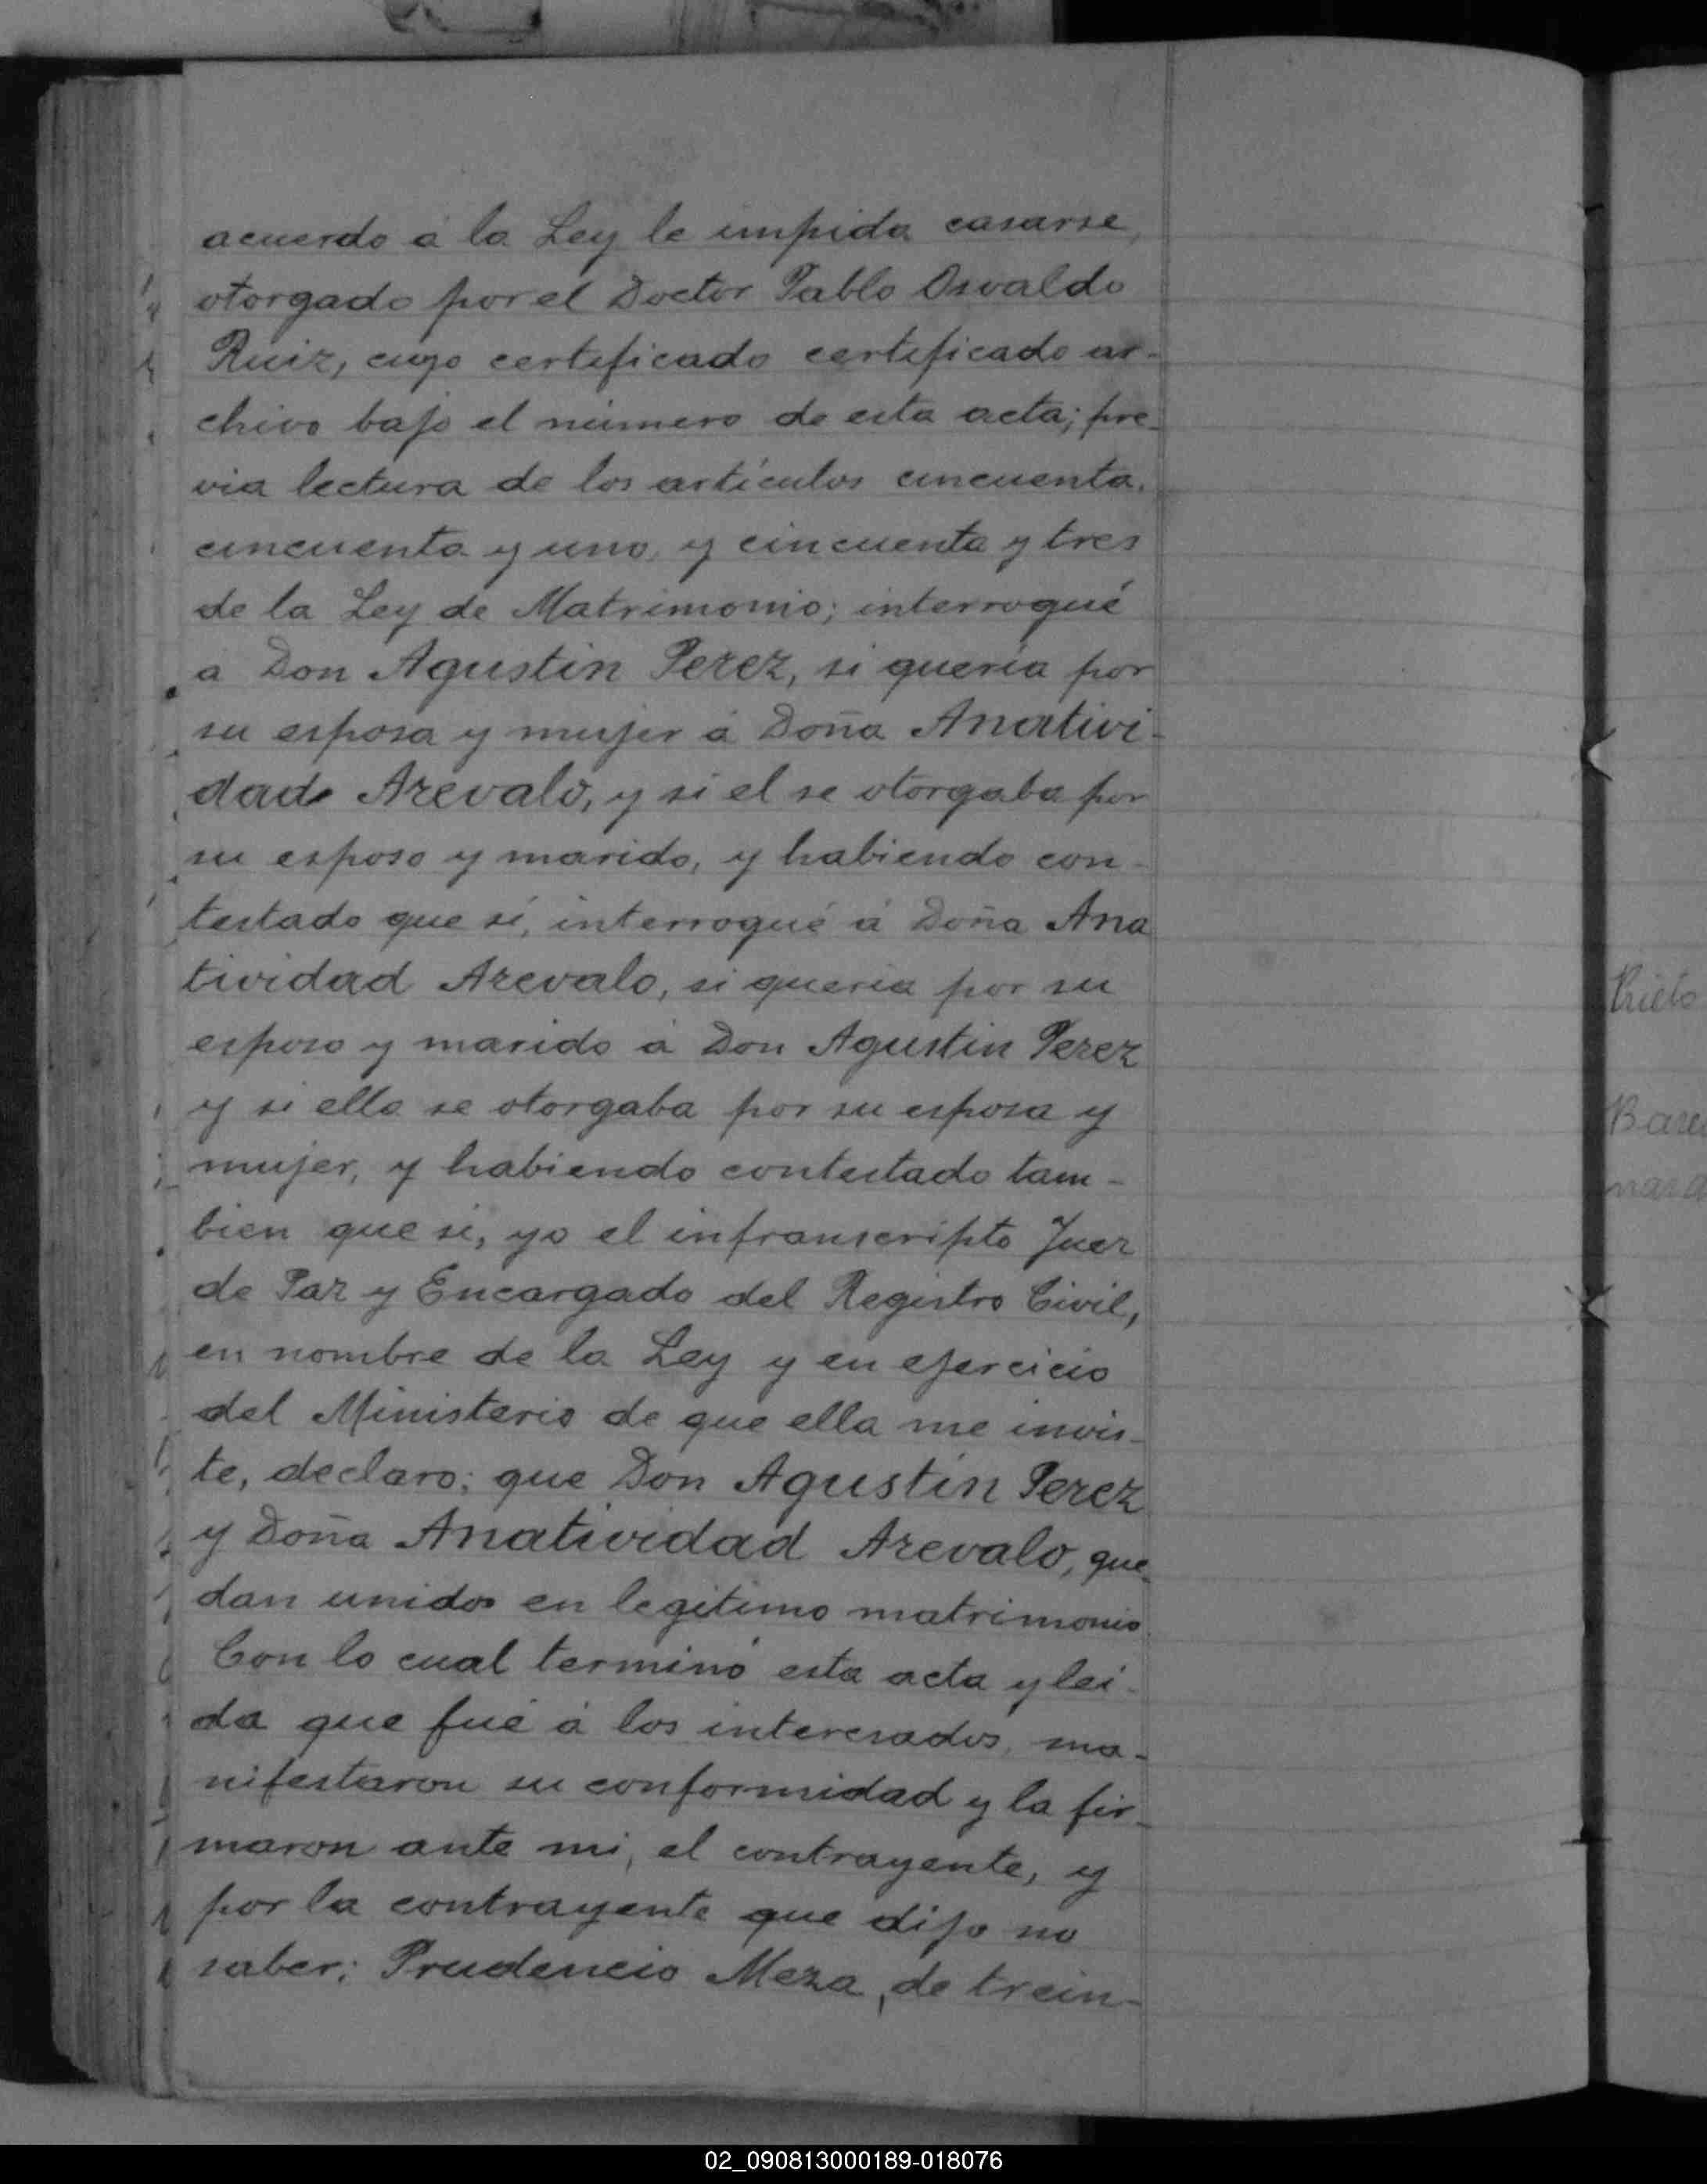 acuerdo á la Ley le impida casarse,
otorgado por el Doctor Pablo Osvaldo
Ruiz, cuyo certificado certificado ar-
chivo bajo el número de esta acta; pre-
via lectura de los artículos cincuenta,
cincuenta y uno, y cincuenta y tres
de la Ley de Matrimonio; interrogué
a Don Agustin Perez, si quería por
su esposa y mujer á Doña Anativi-
dad Arevalo, y si el se otorgaba por
su esposo y marido, y habiendo con-
testado que sí, interrogué á Doña Ana
tividad Arevalo, si queria por su
esposo y marido á Don Agustin Perez
y si ella se otorgaba por su esposa y
mujer, y habiendo contestado tam-
bien que si, yo el infranscripto Juez
de Paz y Encargado del Registro Civil,
en nombre de la Ley y en ejercicio
del Ministerio de que ella me invis-
te, declaro; que Don Agustin Perez
y Doña Anatividad Arevalo, que-
dan unidos en legitimo matrimonio.
Con lo cual terminó esta acta y lei-
da que fué á los interesados, ma-
nifestaron su conformidad y la fir-
maron ante mi, el contrayente, y
por la contrayente que dijo no
saber; Prudencio Meza, de trein-
02_090813000189-018076